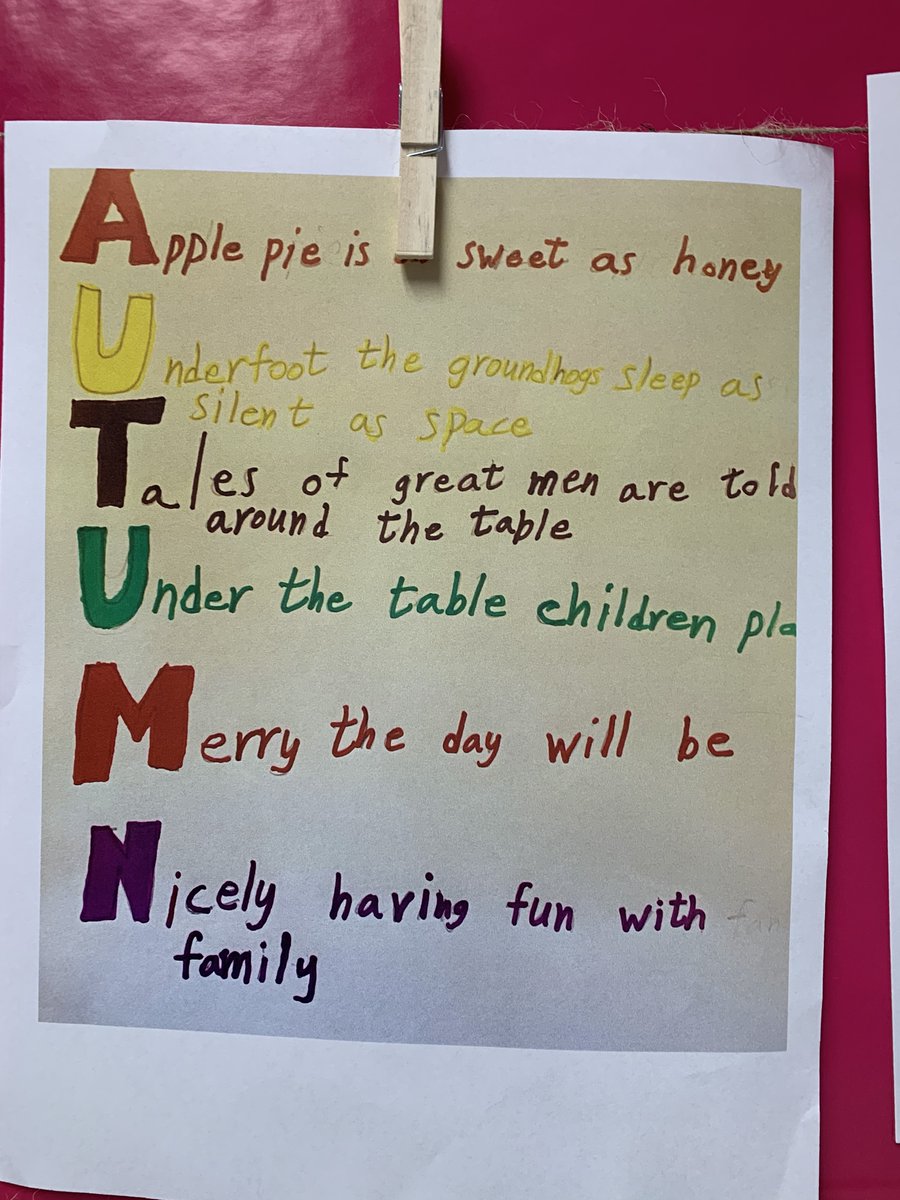 Apple pie is sweet as honey
Underfoot the groundhogs sleep as
silent as space
Tales of great men are told
around the table
Under the table children pla
Merry the day will be
Nicely having fun with
family